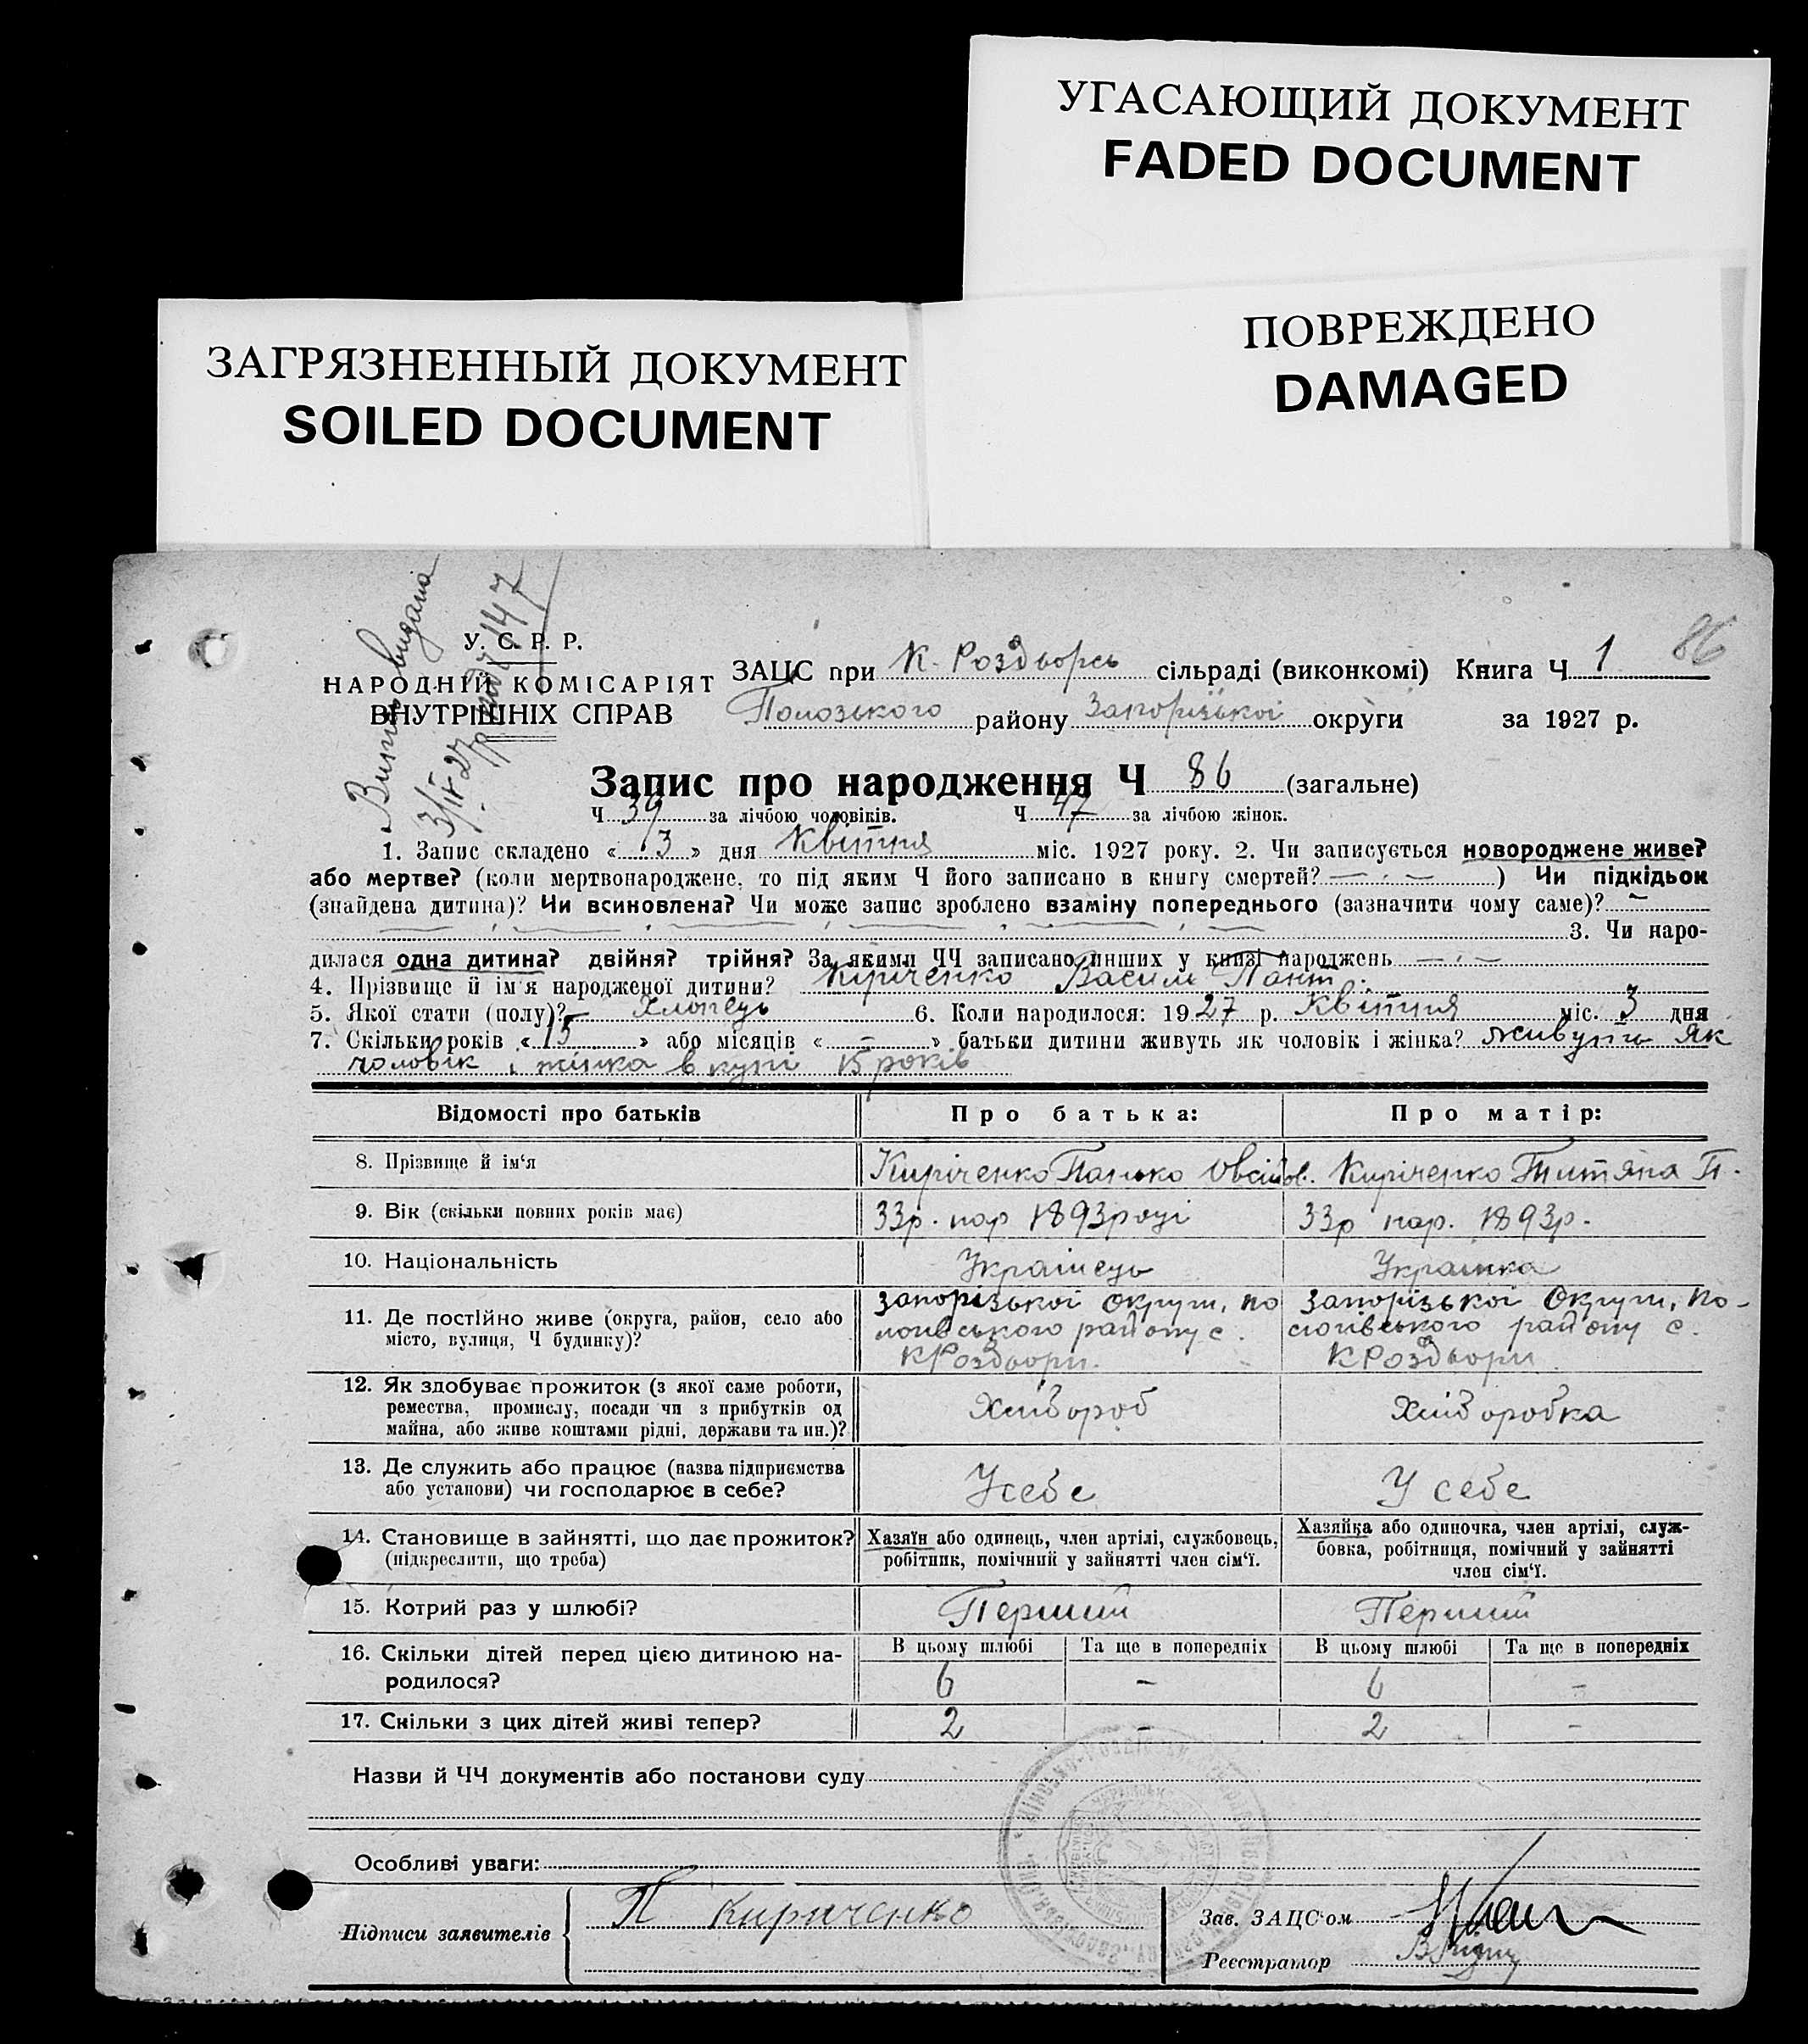 УГАСАЮЩИЙ ДОКУМЕНТ
FADED DOCUMENT
ПОВРЕЖДЕНО
DAMAGED
ЗАГРЯЗНЕННЫЙ ДОКУМЕНТ
SOILED DOCUMENT
86
видана
147
3/IV 27
У. С. Р. Р.
НАРОДНІЙ КОМІСАРІЯТ
ВНУТРІШНІХ СПРАВ
ЗАЦС при К. Роздорсь сільраді (виконкомі) Книга Ч 1
Пологзького району Запорізької округи за 1927 р.
Запис про народження Ч 86 (загальне)
Ч 39 за лічбою чоловіків. Ч 47 за лічбою жінок.
1. Запис складено « 3 » дня Квітня міс. 1927 року. 2. Чи записується новороджене живе?
або мертве? (коли мертвонароджене, то під яким Ч його записано в книгу смертей? — · — ) Чи підкідьок
(знайдена дитина)? Чи всиновлена? Чи може запис зроблено взаміну попереднього (зазначити чому саме)? —
3. Чи наро-
дилася одна дитина? двійня? трійня? За якими ЧЧ записано инших у книзі народжень — · —
4. Прізвище й ім'я народженої дитини? Кириченко Васил Пант.
5. Якої стати (полу)? Хлопець 6. Коли народилося: 1927 р. Квітня міс. 3 дня
7. Скільки років « 15 » або місяців « — » батьки дитини живуть як чоловік і жінка? живуть як
чоловік і жінка в купі 15 років
Відомості про батьків Про батька: Про матір:
8. Прізвище й ім'я Киріченко Панько Овсійов. Киріченко Титяна П.
9. Вік (скільки повних років має) 33р. нар 1893році 33р нар. 1893р.
10. Національність Українець Українка
11. Де постійно живе (округа, район, село або місто, вулиця, Ч будинку)?
Запорізької Округи, по
логівського району с.
КРоздори.
Запорізької Округи, по-
логівського району с.
КРоздори.
12. Як здобуває прожиток (з якої саме роботи,
ремества, промислу, посади чи з прибутків од
майна, або живе коштами рідні, держави та ин.)?
Хлібороб Хліборобка
13. Де служить або працює (назва підприємства
або установи) чи господарює в себе?
У себе У себе
14. Становище в зайнятті, що дає прожиток?
(підкреслити, що треба)
Хазяїн або одинець, член артілі, службовець,
робітник, помічний у зайнятті член сім'ї.
Хазяйка або одиночка, член артілі, служ-
бовка, робітниця, помічний у зайнятті
член сім'ї.
15. Котрий раз у шлюбі? Перший Перший
16. Скільки дітей перед цією дитиною на-
родилося?
В цьому шлюбі Та ще в попередніх В цьому шлюбі Та ще в попередніх
6 – 6 –
17. Скільки з цих дітей живі тепер? 2 – 2 –
Назви й ЧЧ документів або постанови суду
Особливі уваги:
Підписи заявителів П Кириченко
Зав. ЗАЦС'ом
Реєстратор